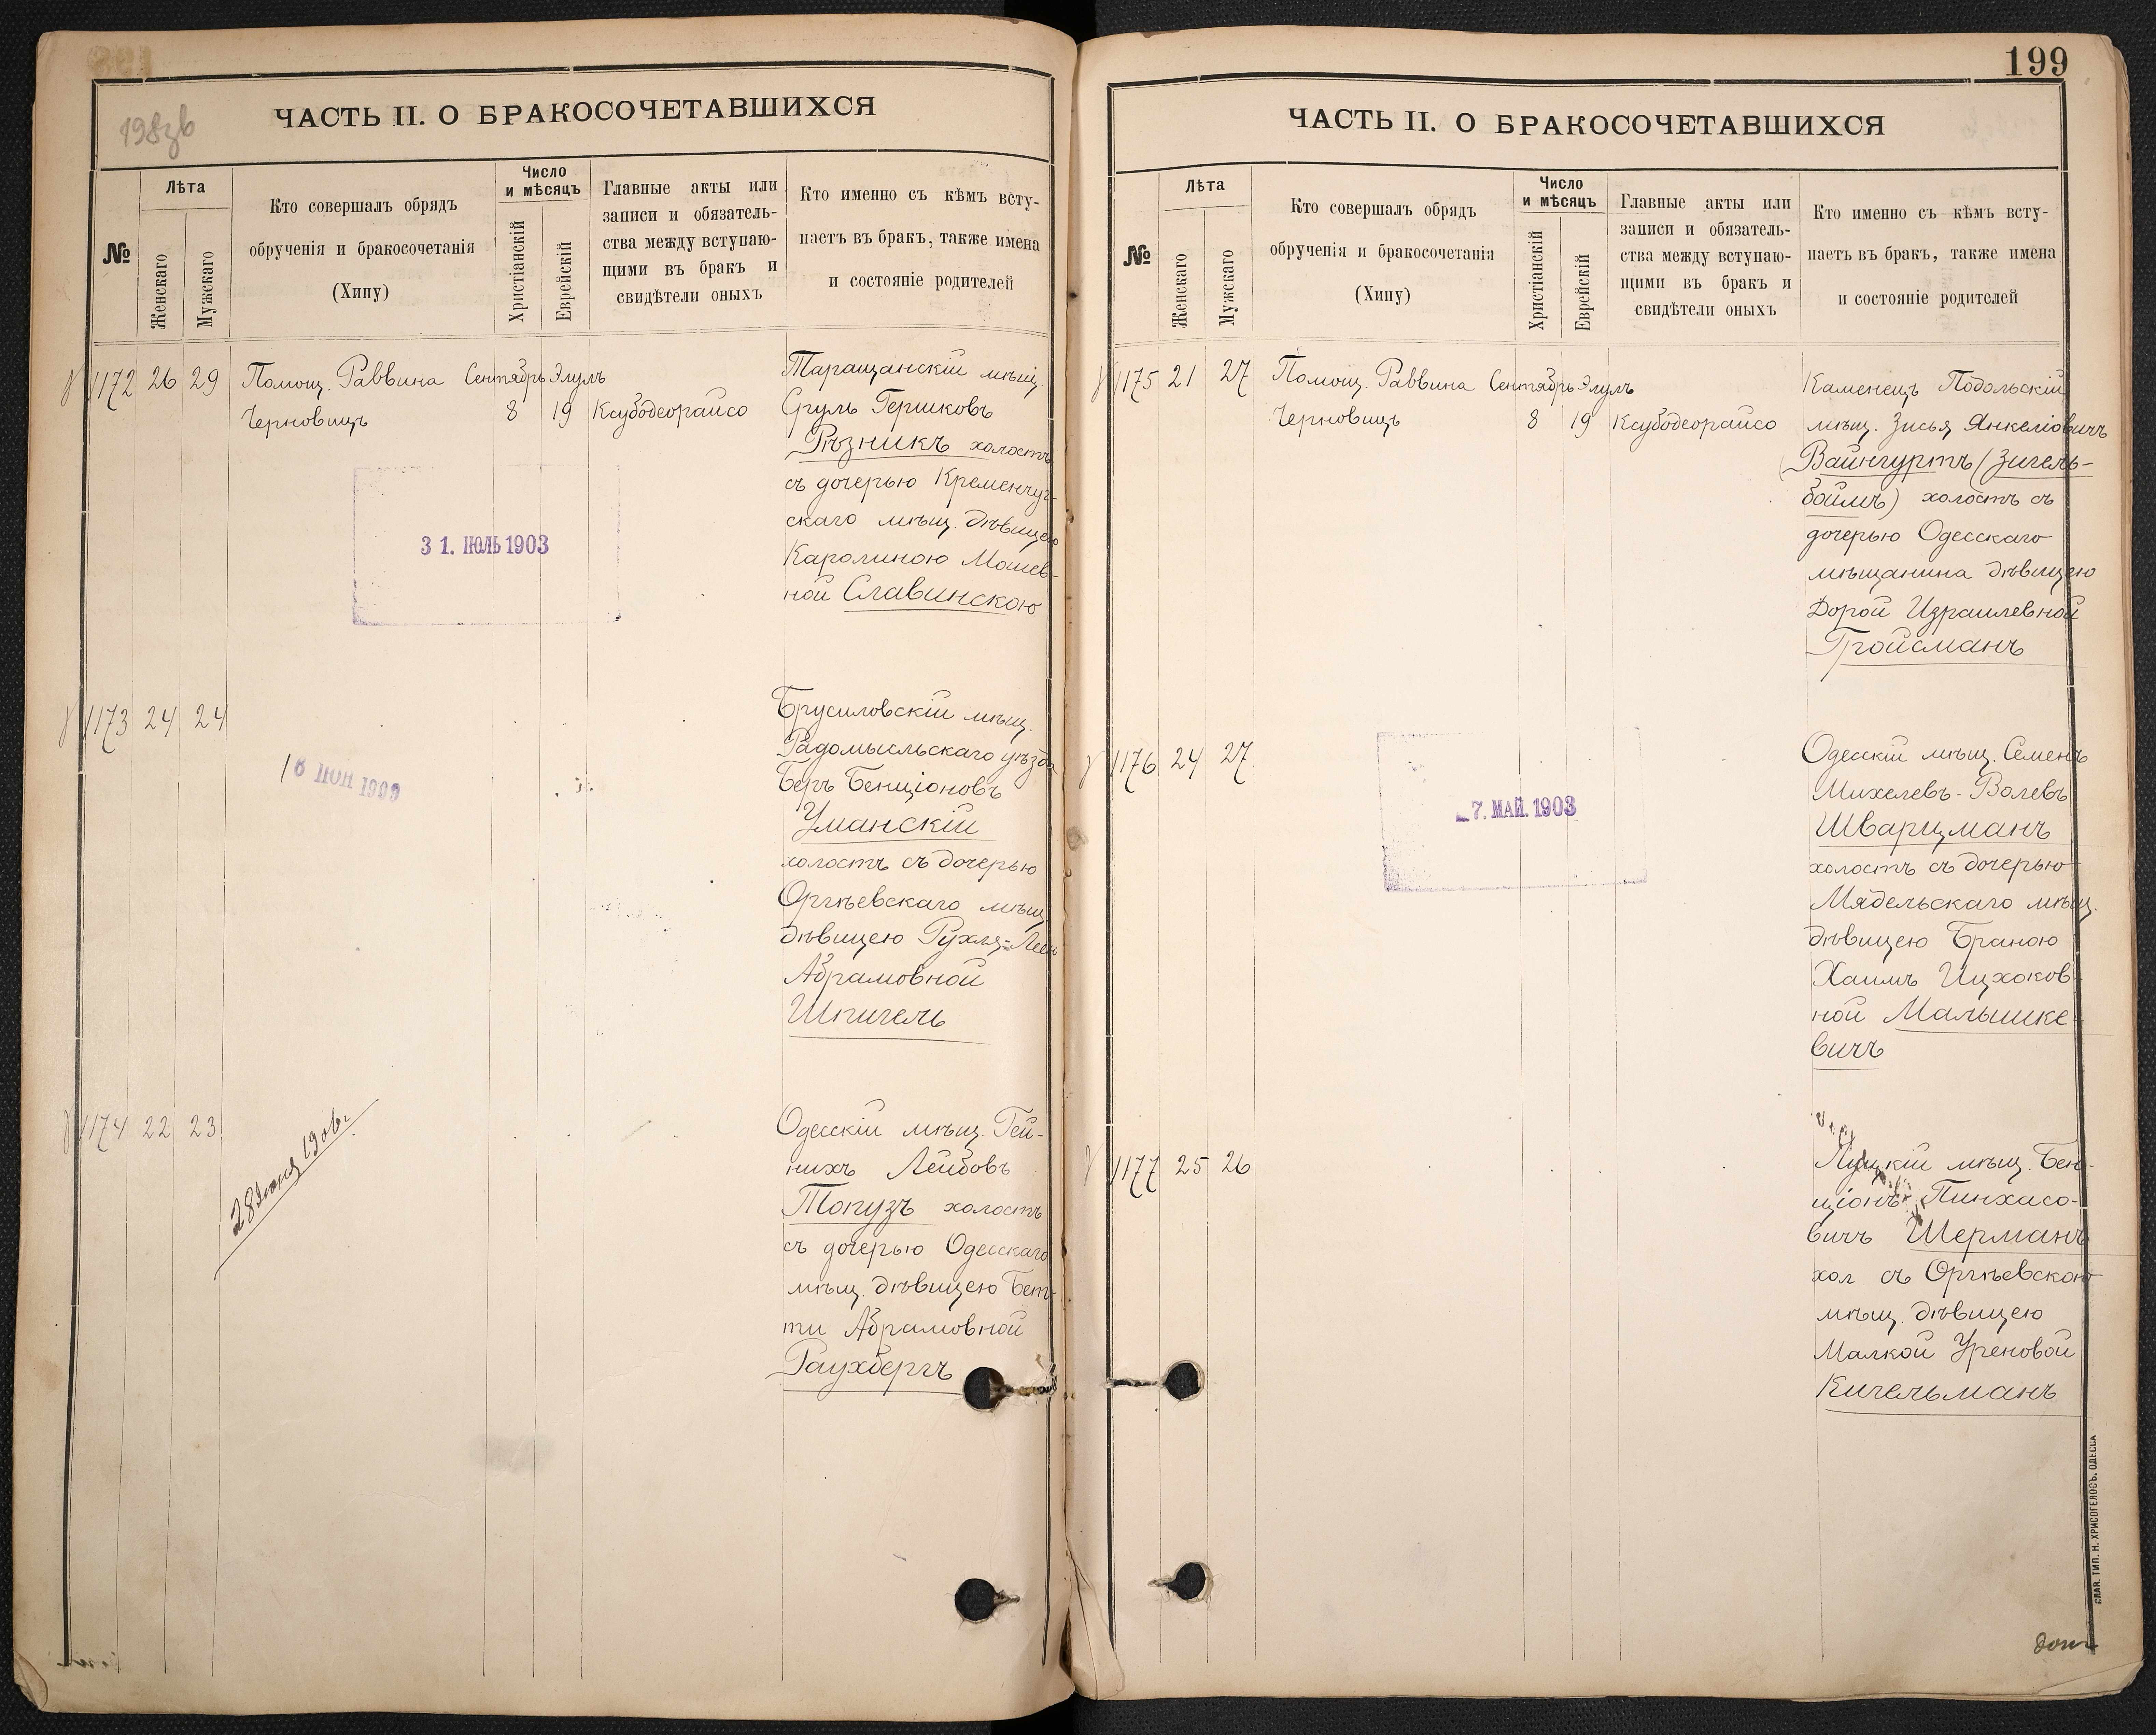 198зв
ЧАСТЬ II. О БРАКОСОЧЕТАВШИХСЯ
№
Лѣта
Женскаго
Мужскаго
Кто совершалъ обрядъ
обрученія и бракосочетанія
(Хипу)
Число
и мѣсяцъ
Христіанскій
Еврейскій
Главные акты или
записи и обязатель-
ства между вступаю-
щими въ бракъ и
свидѣтели оныхъ
Кто именно съ кѣмъ всту-
паетъ въ бракъ, также имена
и состояніе родителей
1172 26 29 Помощ. Раввина Сентябрь Элулъ
Черновицъ 8 19 Ксубодеорайсо
Таращанскій мѣщ.
Сруль Гершковъ
Рѣзникъ холостъ
съ дочерью Кременчуг-
скаго мѣщ. дѣвицею
Каролиною Мошев-
ной Славинскою
31. ІЮЛЬ 1903
1173 24 24
Брусиловскій мѣщ.
Радомысльскаго уѣзда
Беръ Бенціоновъ
Уманскій
холостъ съ дочерью
Оргѣевскаго мѣщ.
дѣвицею Рухля-Леею
Абрамовной
Шпигель
1174 22 23
28 Іюня 1906 г.
Одесскій мѣщ. Гей-
нихъ Лейбовъ
Токузъ холостъ
съ дочерью Одесскаго
мѣщ. дѣвицею Бет-
ти Абрамовной
Раухбергъ
199
ЧАСТЬ II. О БРАКОСОЧЕТАВШИХСЯ
№
Лѣта
Женскаго
Мужскаго
Кто совершалъ обрядъ
обрученія и бракосочетанія
(Хипу)
Число
и мѣсяцъ
Христіанскій
Еврейскій
Главные акты или
записи и обязатель-
ства между вступаю-
щими въ бракъ и
свидѣтели оныхъ
Кто именно съ кѣмъ всту-
паетъ въ бракъ, также имена
и состояніе родителей
1175 21 27 Помощ. Раввина Сентябрь Элулъ
Черновицъ 8 19 Ксубодеорайсо
Каменецъ Подольскій
мѣщ. Зисья Янкеліовичъ
Вайнгуртъ (Зигель-
боймъ) холостъ съ
дочерью Одесскаго
мѣщанина дѣвицею
Дорой Израилевной
Гройсманъ
1176 24 27
7. МАЙ. 1903
Одесскій мѣщ. Семенъ
Михелевъ-Волевъ
Шварцманъ
холостъ съ дочерью
Мядельскаго мѣщ.
дѣвицею Браною
Хаимъ Ицхоков-
ной Малышке-
вичъ
1177 25 26
Луцкій мѣщ. Бен-
ціонъ Пинхасо-
вичъ Шерманъ
хол. съ Оргѣевскою
мѣщ. дѣвицею
МалкойУреновой
Кигельманъ
СЛАВ. ТИП. Н. ХРИСОГЕЛОСЪ, ОДЕССА